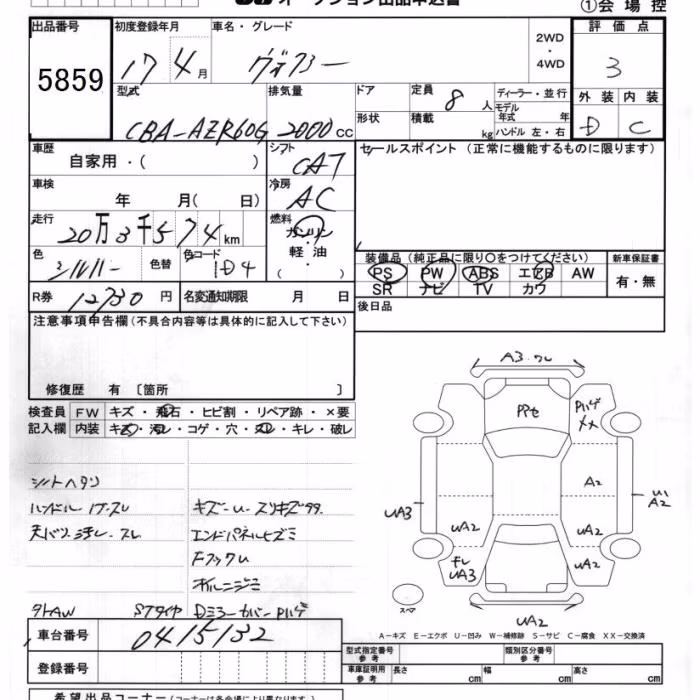 オークション出品申込書
①会場控
出品番号
5859
初度登録年月
17年4月
車名・グレード
ヴォクシー
2WD・4WD
評価点
3
外装 内装
D C
型式
CBA-AZR60G
排気量
2000cc
ドア
形状
定員 8人
積載 kg
ディーラー・並行
モデル年式 年
ハンドル 左・右
車歴
自家用・( )
シフト
CAT
セールスポイント(正常に機能するものに限ります)
車検
年 月( 日)
冷房
AC
走行
20万3千574km
燃料
ガソリン・軽油・( )
色
シルバー
色替
色コード
1D4
装備品(純正品に限り○をつけてください)
PS PW ABS エアB AW
SR ナビ TV カワ
新車保証書
有・無
R券
12730円
名変通知期限 月 日
後日品
注意事項申告欄(不具合内容等は具体的に記入して下さい)
修復歴 有〔箇所 〕
検査員記入欄
FW キズ・飛石・ヒビ割・リペア跡・×要
内装 キズ・汚れ・コゲ・穴・スレ・キレ・破レ
シートヘタリ
ハンドル スレ
キズ-U-スリキズ
エンドパネルヒズミ
FフックU
タトAW
STタイヤ
DミラーカバーPハゲ
A3 ワレ
PPセ
Pハゲ
XX
A2
UA3
A2
UA2
UA2
UA3
UA2
スペア
UA2
A-キズ E-エクボ U-凹み W-補修跡 S-サビ C-腐食 XX-交換済
車台番号
0415132
登録番号
型式指定番号 参考
類別区分番号 参考
車庫証明用 参考
長さ cm
幅 cm
高さ cm
希望出品コーナー(コーナーは各会場により異なります。)